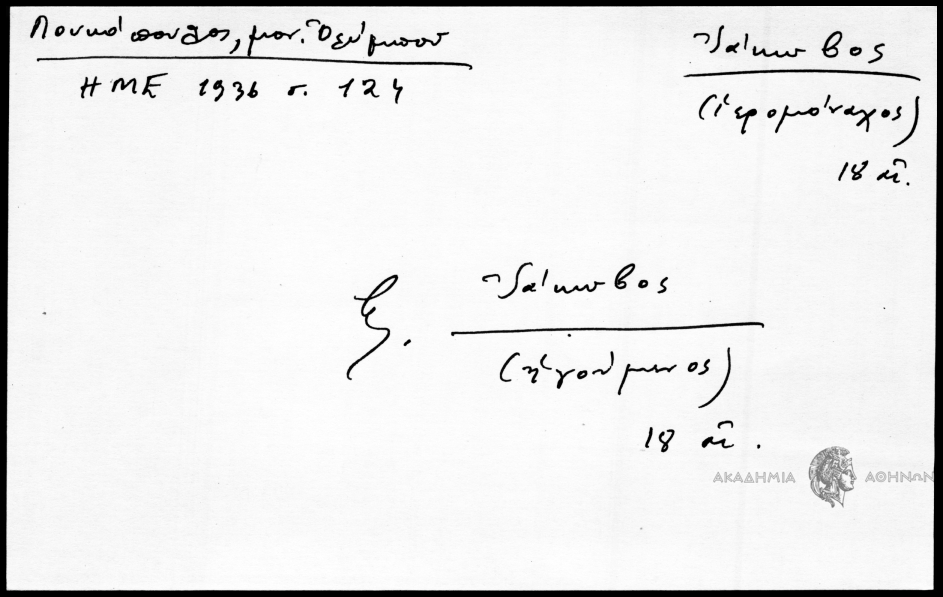 Λουκόπουλος, μον. Ὀλύμπου
ΗΜΕ 1936 σ. 124
Ἰάκωβος
(ἱερομόναχος)
18 αἰ.
Ἰάκωβος
(ἡγούμενος)
18 αἰ.
ΑΚΑΔΗΜΙΑ ΑΘΗΝΩΝ